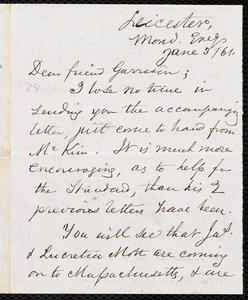 Leicester,
Mond. Eveg
June 3/61.
Dear friend Garrison;
I lose no time in
sending you the accompanying
letter, just come to hand from
McKim. It is much more
encouraging, as to help for
the Standard, than his 2
previous letters have been.
You will see that Jas.
& Lucretia Mott are coming
on to Massachusetts, & are